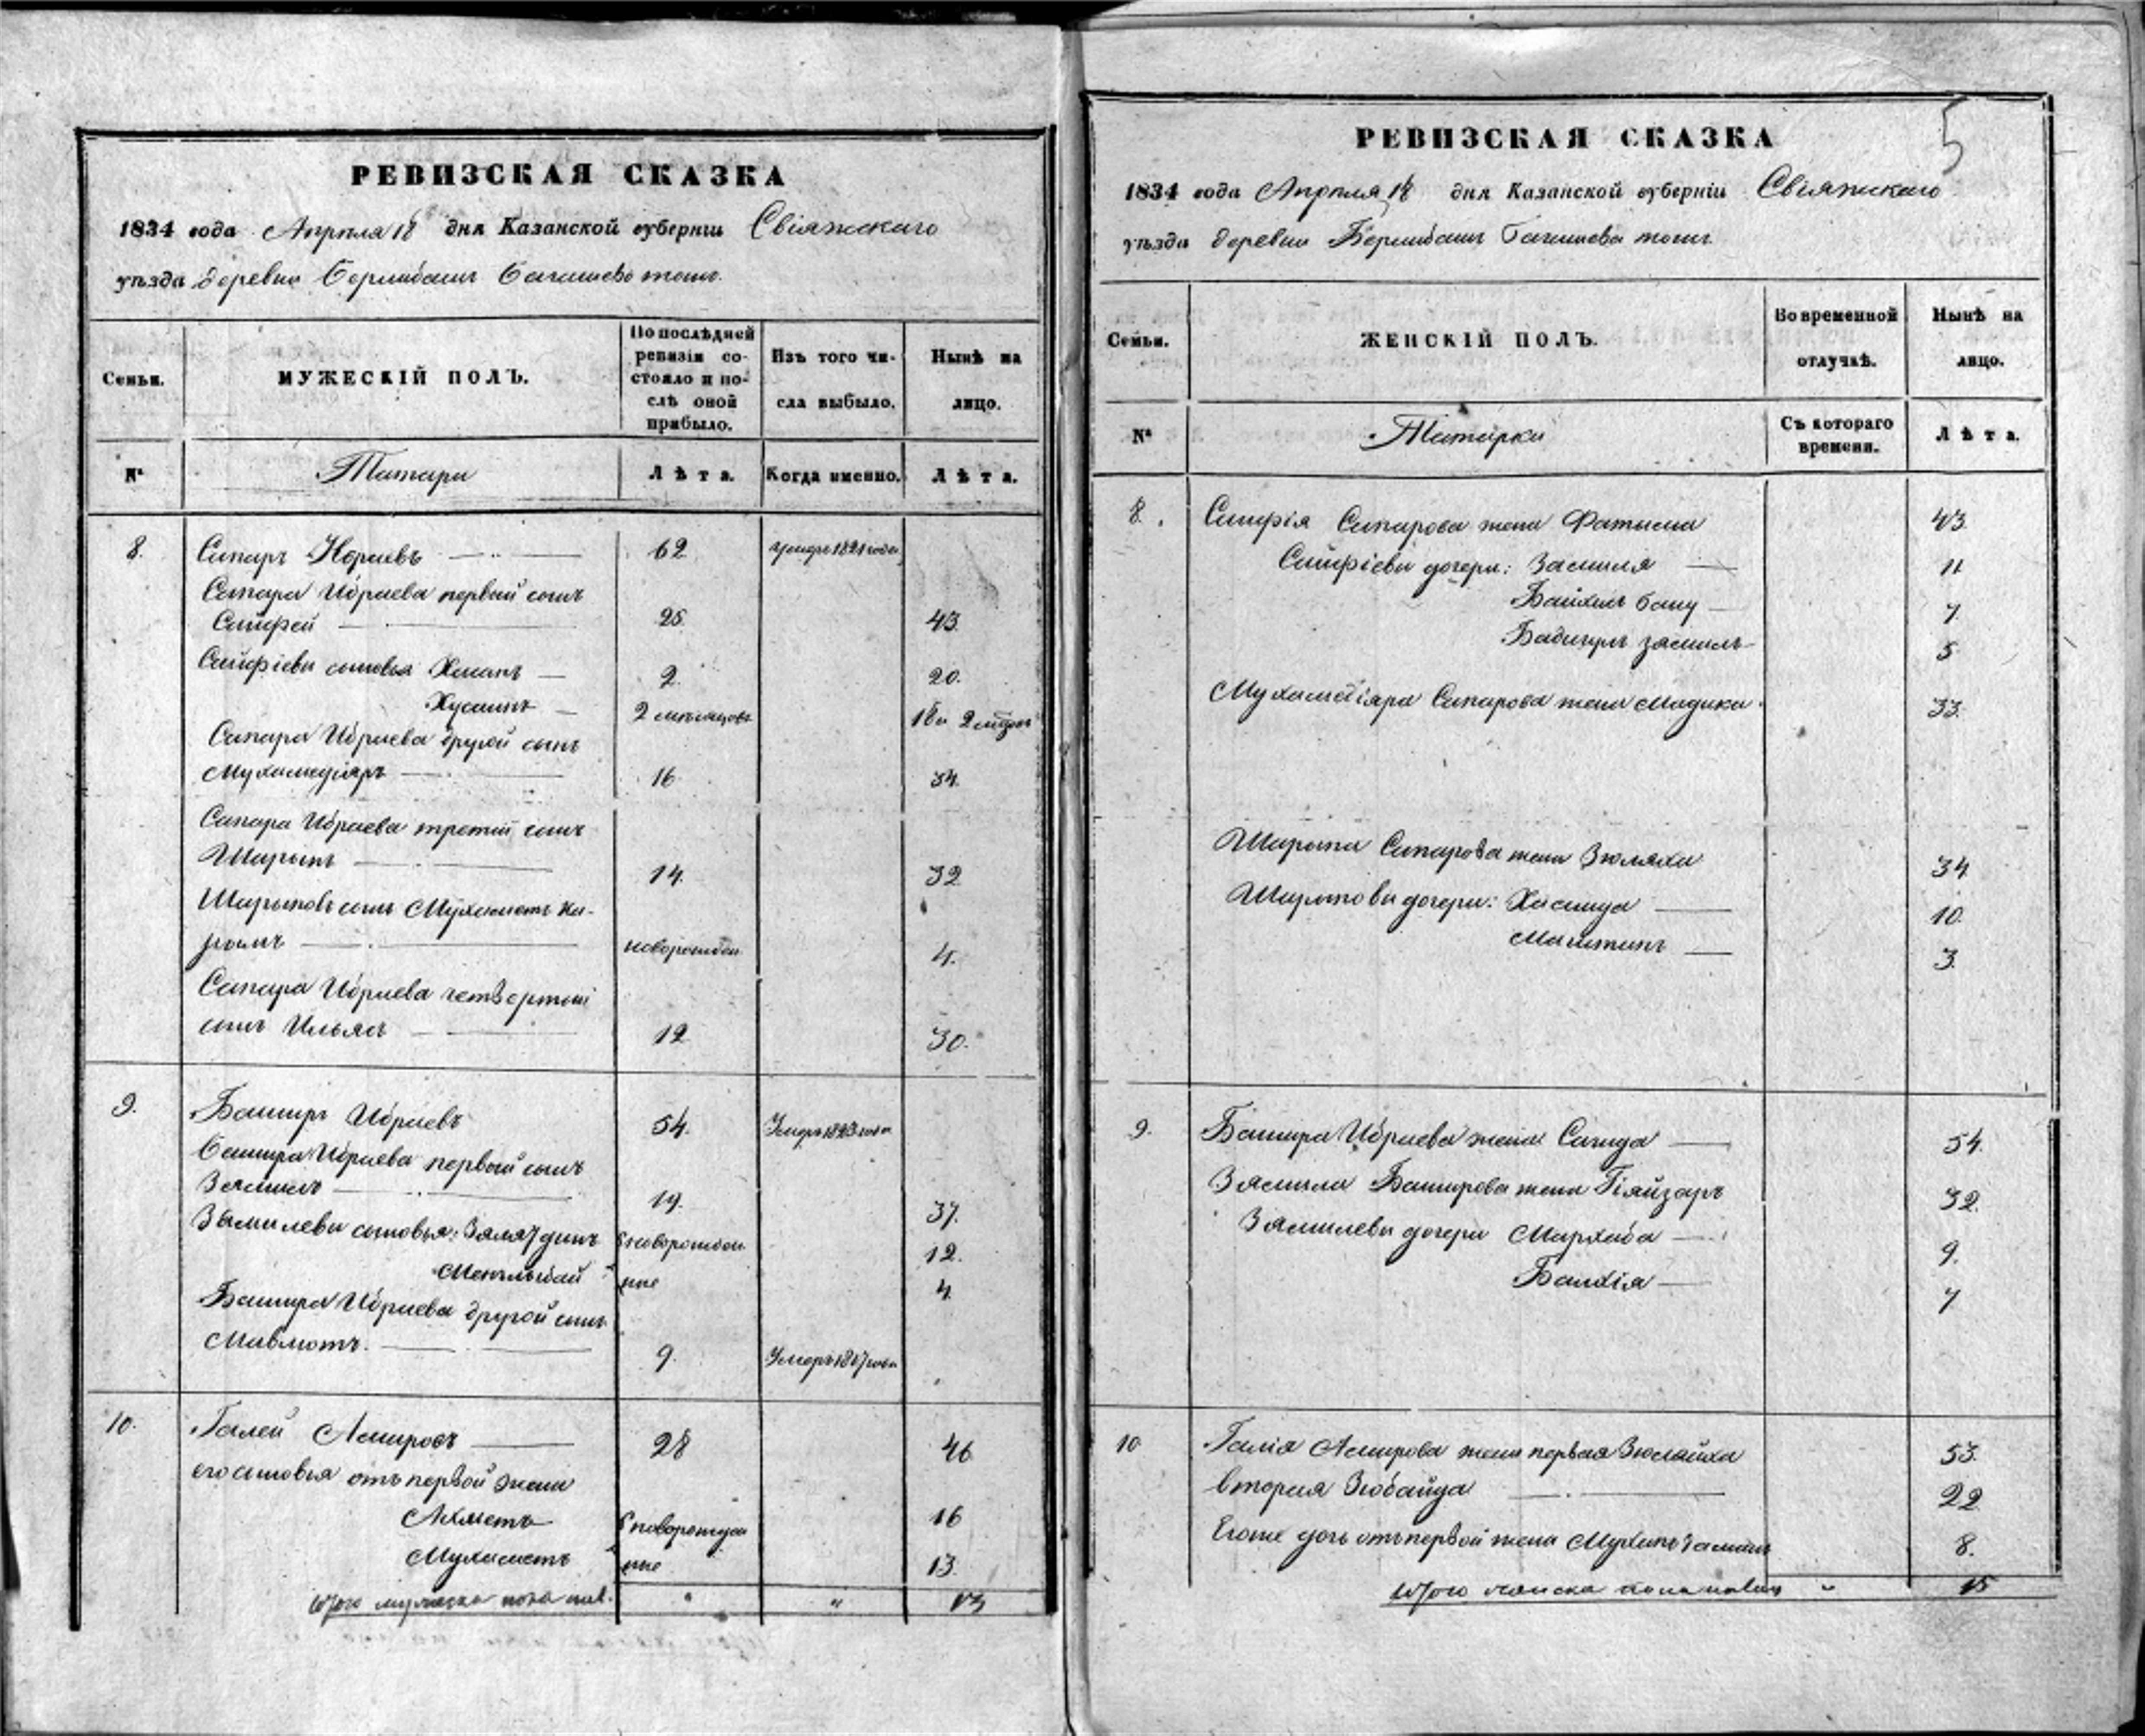 РЕВИЗСКАЯ СКАЗКА
1834 года Апреля 18 дня Казанской губерніи Свіяжскаго
уѣзда деревни Бурмибашъ Бачашево тожъ.
Семьи.
МУЖЕСКІЙ ПОЛЪ.
По послѣдней ревизіи состояло и послѣ оной прибыло.
Изъ того числа выбыло.
Ныне на лицо.
№
Татары
Лѣта.
Когда именно.
Лѣта.
8. Сапаръ Ибраевъ 62 умеръ 1821 года
Сапара Ибраева первый сынъ
Сайфей 25 43
Сайфіевы сыновья Хасанъ 2 20.
Хусаинъ 2 месяцовъ 18 и 2 месяц
Сапара Ибраева другой сынъ
Мухамедіяръ 16 34.
Сапара Ибраева третій сынъ
Шарыпъ 14. 32
Шарыповъ сынъ Мухаметъ Ка-
рымъ новорожден 4.
Сапара Ибраева четвертый
сынъ Ильясъ 12 30.
9. Баширъ Ибраевъ 54. Умеръ 1823 года
Башира Ибраева первый сынъ
Зямилъ 19. 37.
Зямилевы сыновья: Зялятдинъ новорожден 12.
Менглибай ные 4
Башира Ибраева другой сынъ
Мавлютъ. 9. Умеръ 1817 года
10. Галей Амировъ 28 46
его сыновья отъ первой жены
Ахметъ новорожден 16
Мухаметъ ные 13.
Итого мужеска пола нал. " " 13
РЕВИЗСКАЯ СКАЗКА 5
1834 года Апреля 18 дня Казанской губерніи Свіяжскаго
уѣзда деревни Бурмибашъ Бачашева тожъ.
Семьи.
ЖЕНСКІЙ ПОЛЪ.
Во временной отлучкѣ.
Нынѣ на лицо.
№
Татарки
Съ котораго времени.
Лѣта.
8. Сайфія Сапарова жена Фатыма 43.
Сайфіевы дочери: Замиля 11
Байхель бану 7.
Бадигулъ замилъ 5
Мухамедіяра Сапарова жена Мадика 33.
Шарыпа Сапарова жена Зюляха 34
Шарыповы дочери: Хамида 10.
Магитапъ 3.
9. Башира Ибраева жена Сагида 54.
Зямиля Баширова жена Гіяйзаръ 32.
Зямилевы дочери Мархаба 9.
Балхія 7
10 Галія Амирова жена первая Зюлайха 53.
вторая Зюбайда 22
Егоже дочь отъ первой жены 8.
Итого женска пола налицо " 15